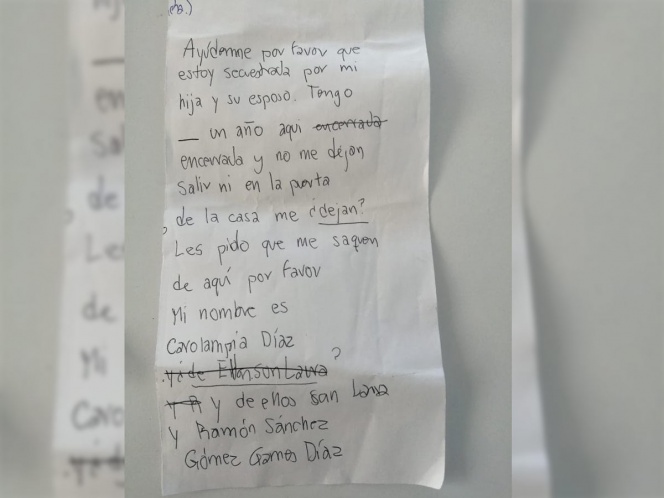 Ayúdenme por favor que
estoy secuestrada por mi
hija y su esposo. Tengo
_ un año aqui encerrada
encerrada y no me dejan
Salir ni en la puerta
, de la casa me ¿dejan?
Les pido que me saquen
de aquí por favor
Mi nombre es
Carolampia Díaz
y de Ellos son Laura ?
Y R y de ellos san Laura
y Ramón Sánchez
Gómez Gamos Díaz